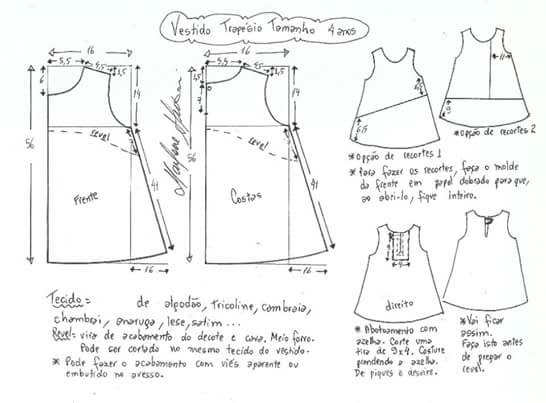 Vestido Trapézio Tamanho 4 anos
16
5,5
4,5
1,5
6
14
56
Revel
3
41
Frente
16
Marlene Mukai
16
5,5
4,5
1,5
1,5
7
14
56
Revel
3
41
Costas
16
6,5
6,5
*Opção de recortes 1
11
*Opção de recortes 2
* Para fazer os recortes, faça o molde
da frente em papel dobrado para que,
ao abri-lo, fique inteiro.
Tecido=
de algodão, tricoline, cambraia,
chambrai, anarruga, lese, satim ...
Revel= vira de acabamento do decote e cava. Meio forro.
Pode ser cortado no mesmo tecido do vestido.
* Pode fazer o acabamento com viés aparente ou
embutido no avesso.
4
direito
* Abotoamento com
azelha. Corte uma
tira de 9x4. Costure
prendendo a azelha.
De piques e desvire.
*Vai ficar
assim.
Faça isto antes
de pregar o
revel.